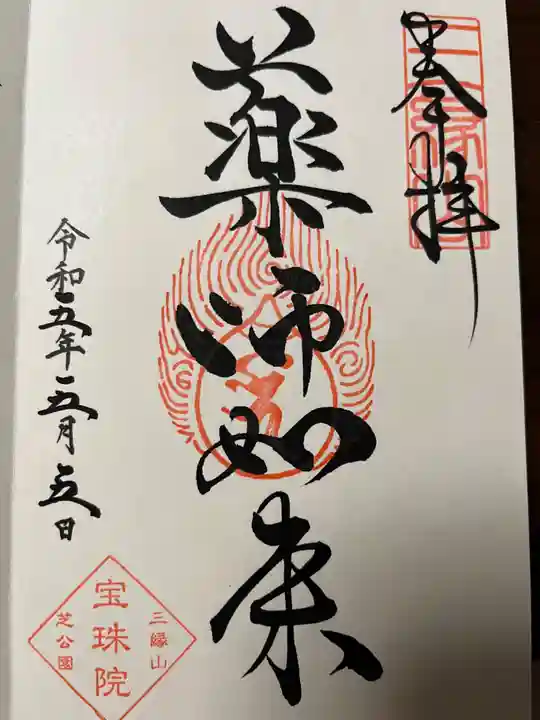 奉拝
三縁山
薬師如来
令和五年五月五日
三縁山
宝珠院
芝公園